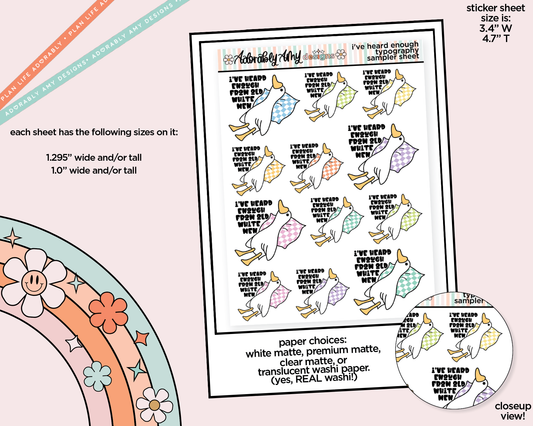 PLAN LIFE ADORABLY • PLAN LIFE ADORABLY •
ADORABLY AMY DESIGNS • ADORABLY AMY DESIGNS •
sticker sheet
size is:
3.4” W
4.7” T
each sheet has the following sizes on it:
1.295” wide and/or tall
1.0” wide and/or tall
Adorably Amy
designs
i've heard enough
typography
sampler sheet
I'VE HEARD
ENOUGH
FROM OLD
WHITE
MEN
I'VE HEARD
ENOUGH
FROM OLD
WHITE
MEN
I'VE HEARD
ENOUGH
FROM OLD
WHITE
MEN
I'VE HEARD
ENOUGH
FROM OLD
WHITE
MEN
I'VE HEARD
ENOUGH
FROM OLD
WHITE
MEN
I'VE HEARD
ENOUGH
FROM OLD
WHITE
MEN
I'VE HEARD
ENOUGH
FROM OLD
WHITE
MEN
I'VE HEARD
ENOUGH
FROM OLD
WHITE
MEN
I'VE HEARD
ENOUGH
FROM OLD
WHITE
MEN
I'VE HEARD
ENOUGH
FROM OLD
WHITE
MEN
I'VE HEARD
ENOUGH
FROM OLD
WHITE
MEN
I'VE HEARD
ENOUGH
FROM OLD
WHITE
MEN
paper choices:
white matte, premium matte,
clear matte, or
translucent washi paper.
(yes, REAL washi!)
typog
sampler
I'VE HEARD
ENOUGH
FROM OLD
WHITE
MEN
I'VE HEARD
ENOUGH
FROM OLD
WHITE
MEN
closeup
view!